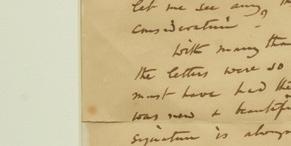 let me see any, 
consideration -
With many than
the letters were so
must have had the
was now a beautif
signature is always